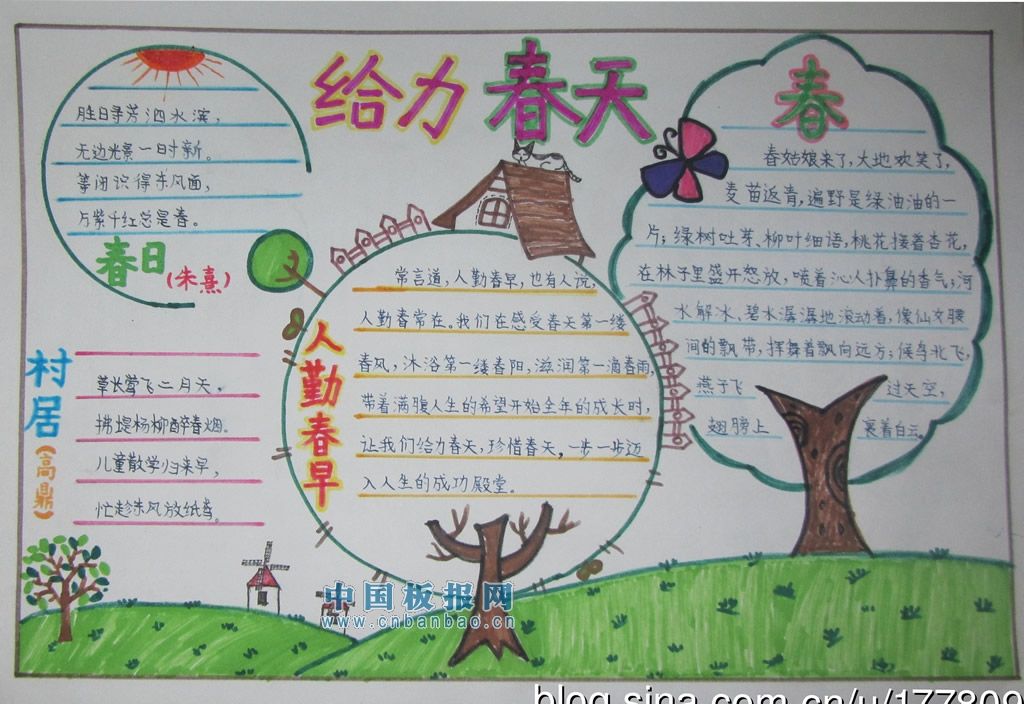 给力春天
胜日寻芳泗水滨，
无边光景一时新。
等闲识得东风面，
万紫千红总是春。
春日
(朱熹)
村居
(高鼎)
草长莺飞二月天。
拂堤杨柳醉春烟。
儿童散学归来早，
忙趁东风放纸鸢。
人勤春早
常言道，人勤春早，也有人说，
人勤春常在。我们在感受春天第一缕
春风，沐浴第一缕春阳，滋润第一滴春雨，
带着满腹人生的希望开始全年的成长时，
让我们给力春天，珍惜春天，一步一步迈
入人生的成功殿堂。
春
春姑娘来了，大地欢笑了，
麦苗返青，遍野是绿油油的一
片；绿树吐芽、柳叶细语，桃花接着杏花，
在林子里盛开怒放，喷着沁人扑鼻的香气；河
水解冰、碧水潺潺地滚动着，像仙女腰
间的飘带，挥舞着飘向远方；候鸟北飞，
燕子飞 过天空，
翅膀上 裹着白云。
中国板报网
www.cnbanbao.cn
blog.sina.com.cn/u/177809